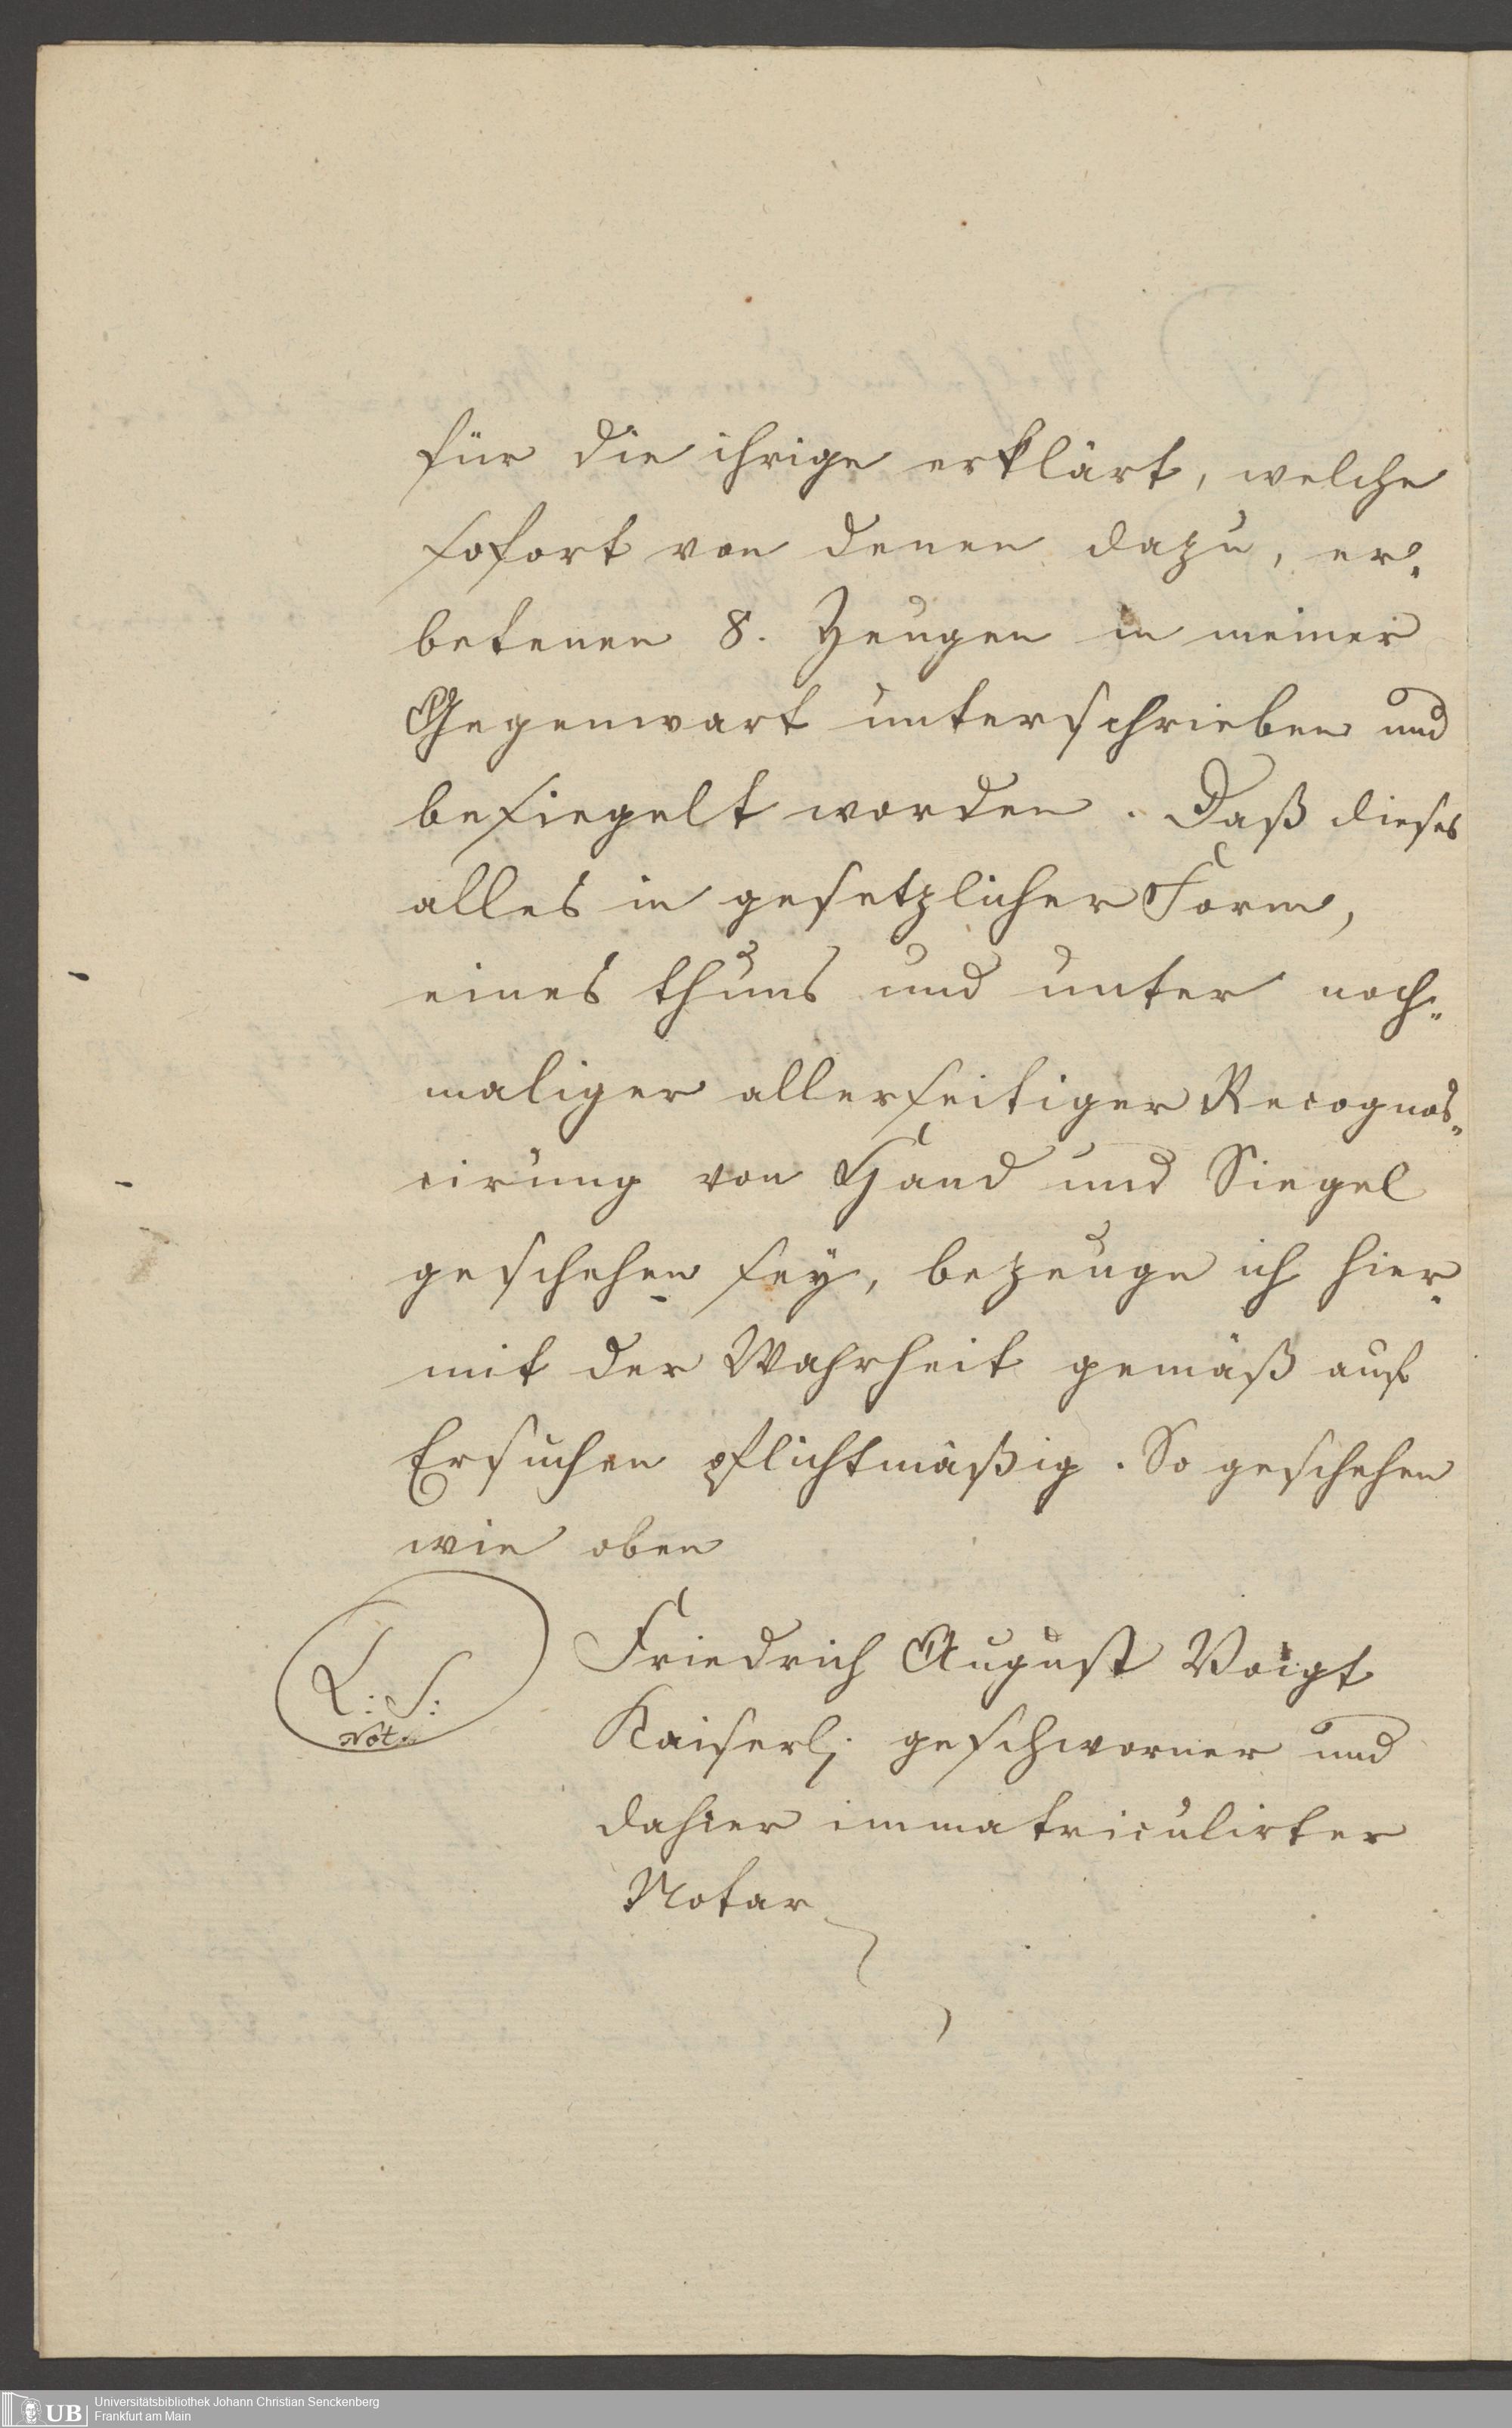 für die ihrige erklärt, welche
sofort von denen dazu, er„
betenen 8. Zeugen in meiner
Gegenwart unterschrieben und
besiegelt worden. Daß dieses
alles in gesetzlicher Form,
eines thuns und unter noch„
maliger allerseitiger Recognos„
cirung von Hand und Siegel
geschehen sey, bezeuge ich hier„
mit der Wahrheit gemäß auf
Ersuchen pflichtmäßig. So geschehen
wie oben
L: S:
Not.
Friedrich August Voigt
Kaiserl. geschworner und
dahier immatriculirter
Notar
UB
Universitätsbibliothek Johann Christian Senckenberg
Frankfurt am Main